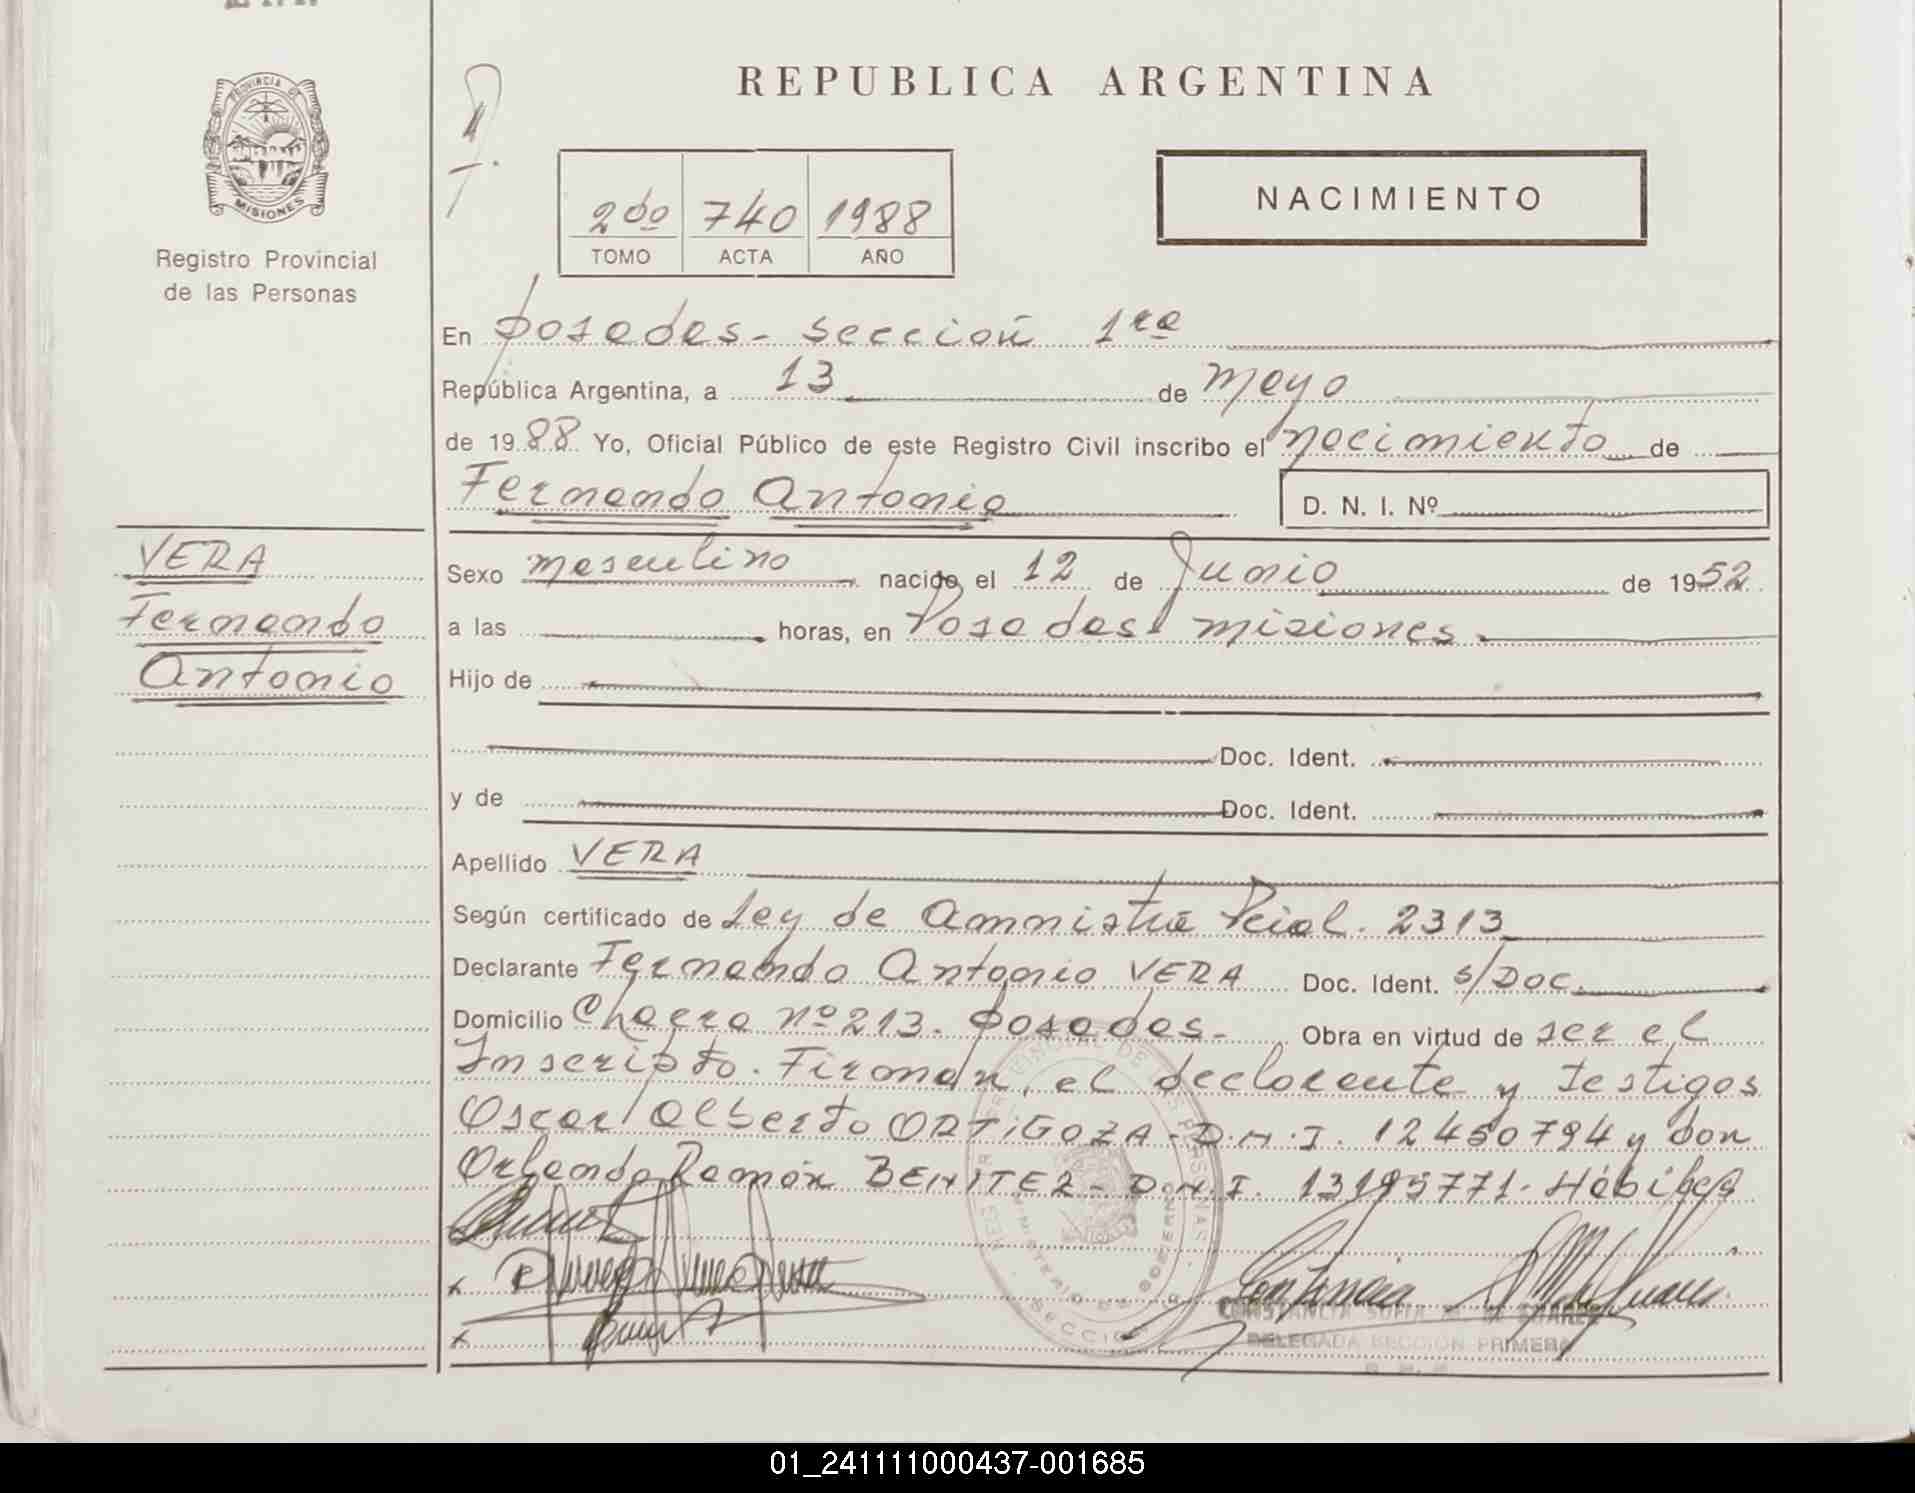 PROVINCIA DE
MISIONES
Registro Provincial
de las Personas
REPUBLICA ARGENTINA
2do 740 1988
TOMO ACTA AÑO
NACIMIENTO
En Posadas - Sección 1ra
República Argentina, a 13 de Mayo
de 1988 Yo, Oficial Público de este Registro Civil inscribo el nacimiento de
Fernando Antonio D. N. I. Nº
VERA
Fernando
Antonio
Sexo masculino nacido el 12 de Junio de 1952
a las horas, en Posadas misiones
Hijo de
Doc. Ident.
y de Doc. Ident.
Apellido VERA
Según certificado de Ley de Amnistía Pcial. 2313
Declarante Fernando Antonio VERA Doc. Ident. s/DOC.
Domicilio Chacra nº 213. Posadas - Obra en virtud de ser el
Inscripto. Firman, el declarante y testigos
Oscar Alberto ORTIGOZA - D.N.I. 12450794 y don
Orlando Ramón BENITEZ - D.N.I. 13195771. Hábiles
CONSTANCIA SOFIA M. de SUAREZ
DELEGADA SECCION PRIMERA
01_241111000437-001685